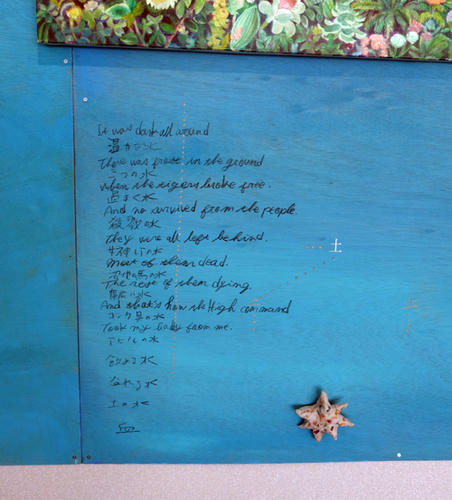 It was dark all around
温かい水
There was frost in the ground
二つの水
When the tigers broke free.
過ぎく水
And no survived from the people.
殺戮の水
They were all left behind.
の水
Most of them dead.
の水
The rest of them dying.
の水
And that's how the High command
の水
Took my baby from me.
アヒルの水
飲める水
溢れる水
土の水
土